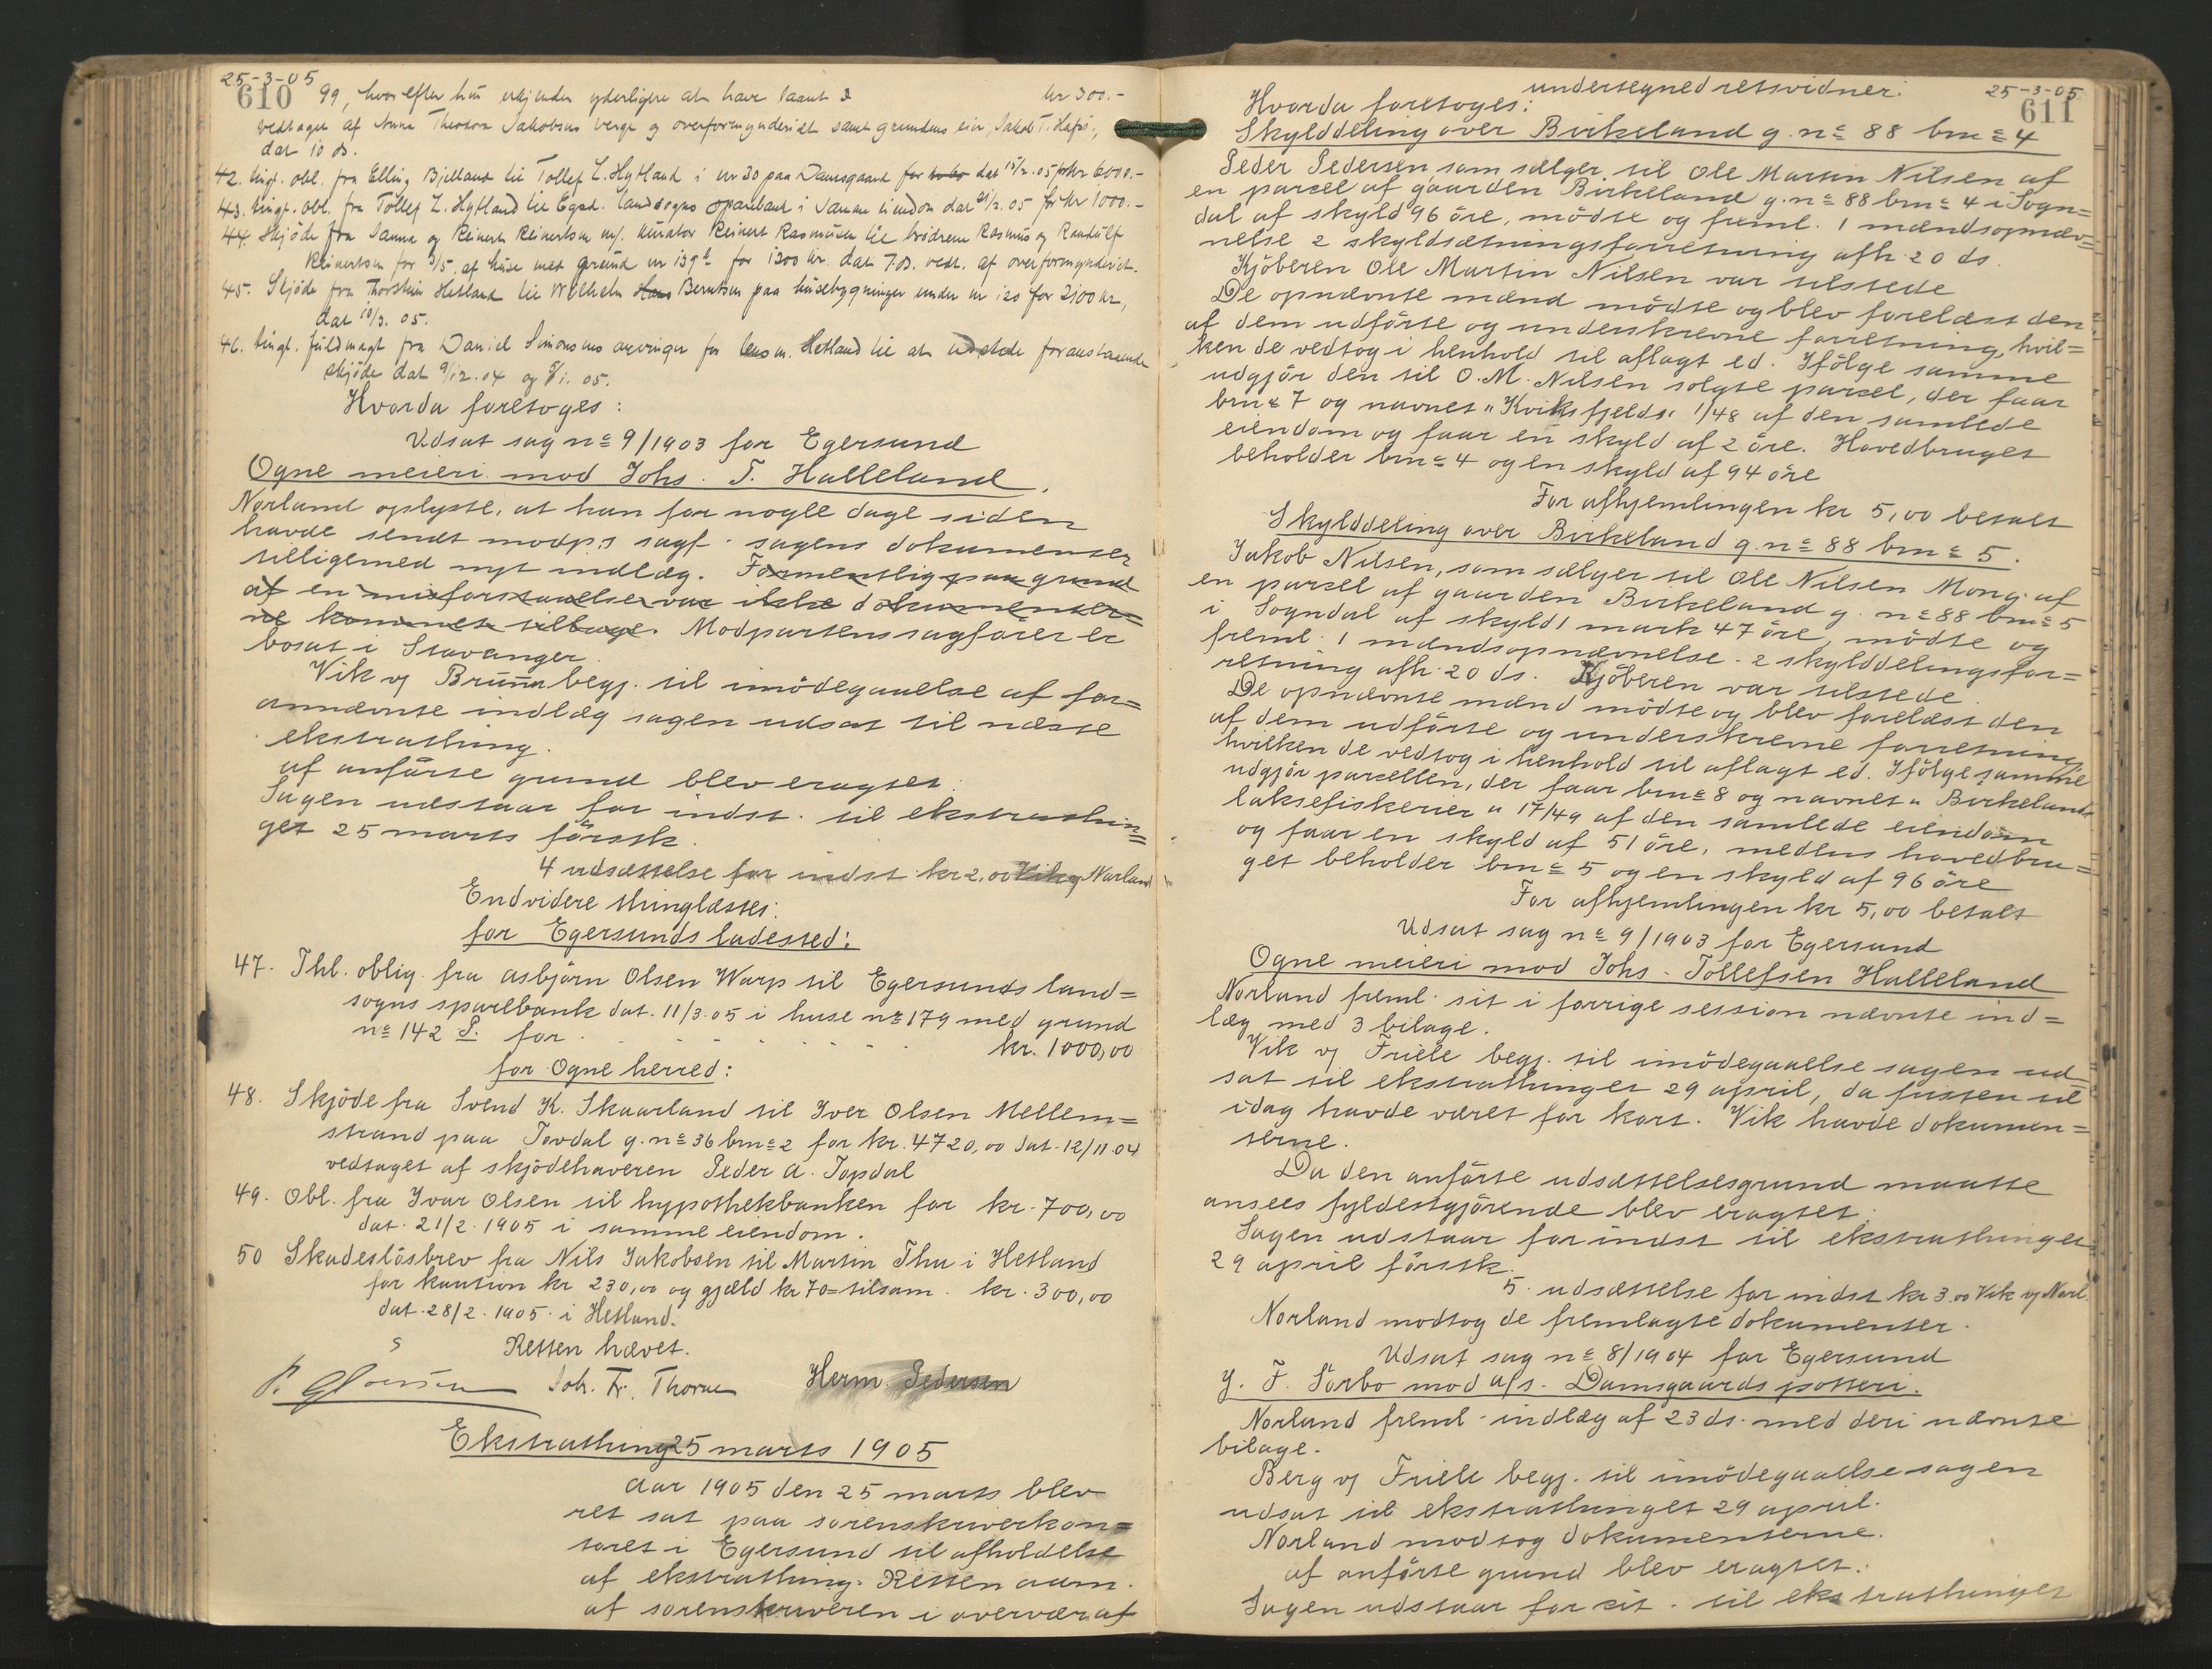 25-3-05
610
99, hvorefter hun erkjender yderligere at have laant kr 300.-
vedtaget af Anna Theodora Jakobsens verge og overformynderiet samt grundens eier, Jakob T.
dat 10 ds.
42. tingl. obl. fra Elling Bjelland til Tollef L. Hytland i nr 30 paa Damsgaard dat 15/2.05 for kr 6000.-
43. tingl. obl. fra Tollef L. Hytland til Egsd. landsogns sparebank i samme eiendom dat 21/2.05 for kr 1000.-
44. Skjöde fra Sanna og Reinert Reinertsen m/. kurator Reinert Rasmusen til brödrene Rasmus og Randulf
Reinertsen for 3/5 af huse med grund nr 139b for 1300 kr. dat 7 ds. vedt. af overformynderiet.
45. Skjöde fra Thorstein Hetland til Wilhelm Hans Berntsen paa husebygninger under nr 120 for 2100 kr,
dat 10/3.05.
46. tingl. fuldmagt fra Daniel Simonsens arvinger for lensm. Hetland til at udstede foranstaaende
skjöde dat 9/12.04 og 8/1.05.
Hvorda foretoges:
Udsat sag no 9/1903 for Egersund
Ogne meieri mod Johs. T. Halleland.
Norland oplyste, at han for nogle dage siden
havde sendt modp.s sagf. sagens dokumenter
tilligemed nyt indlæg. Formentlig paa grund
af en misforstaaelse var ikke dokumenter=
ne kommet tilbage. Modpartens sagförer er
bosat i Stavanger.
Vik vj Bruun begj. til imödegaaelse af for=
annævnte indlæg sagen udsat til næste
ekstrathing.
af anförte grund blev eragtet.
Sagen udstaar for indst. til ekstrathin=
get 25 marts förstk.
4 udsættelse for indst. kr 2,00 Vik vj Norland
Endvidere thinglæstes:
for Egersunds ladested:
47. Thl. oblig. fra Asbjörn Olsen Warp til Egersunds land=
sogns sparebank dat. 11/3.05 i huse no 179 med grund
no 142 S. for . - - - - - - kr. 1000,00
for Ogne herred:
48. Skjöde fra Svend K. Skaarland til Iver Olsen Mellem=
strand paa Tovdal g.no 36 bno 2 for kr. 4720,00 dat. 12/11.04
vedtaget af skjödehaveren Peder A. Topdal
49. Obl. fra Ivar Olsen til hypothekbanken for kr. 700,00
dat. 21/2.1905 i samme eiendom.
50 Skadeslösbrev fra Nils Jakobsen til Martin Thu i Hetland
for kaution kr 230,00 og gjæld kr 70= tilsam. kr. 300,00
dat. 28/2.1905 i Hetland.
Retten hævet.
Joh. Fr. Thorne Herm. Pedersen
Ekstrathing 25 marts 1905
Aar 1905 den 25 marts blev
ret sat paa sorenskriverkon=
toret i Egersund til afholdelse
af ekstrathing. Retten adm.
af sorenskriveren i overvær af
25-3-05
611
undertegned retsvidner:
Hvorda foretoges:
Skylddeling over Birkeland g.no 88 bno 4
Peder Pedersen, som sælger til Ole Martin Nilsen af
en parcel af gaarden Birkeland g.no 88 bno 4 i Sogn=
dal af skyld 96 öre, mödte og freml. 1 mændsopnæv=
nelse 2 skyldsætningsforretning afh. 20 ds.
Kjöberen Ole Martin Nilsen var tilstede
De opnævnte mænd mödte og blev forelæst den
af dem udförte og underskrevne forretning, hvil=
ken de vedtog i henhold til aflagt ed. Ifölge samme
udgjör den til O. M. Nilsen solgte parcel, der faar
bno 7 og navnet "Kviksfjeld" 1/48 af den samlede
eiendom og faar en skyld af 2 öre. Hovedbruget
beholder bno 4 og en skyld af 94 öre
For afhjemlingen kr 5,00 betalt
Skylddeling over Birkeland g.no 88 bno 5.
Jakob Nilsen, som sælger til Ole Nilsen Mong af
en parcel af gaarden Birkeland g.no 88 bno 5
i Sogndal af skyld 1 mark 47 öre, mödte og
freml. 1 mændsopnævnelse 2 skylddelingsfor=
retning afh. 20 ds. Kjöberen var tilstede.
De opnævnte mænd mödte og blev forelæst den
af dem udförte og underskrevne forretning
hvilken de vedtog i henhold til aflagt ed. Ifölge samme
udgjör parcellen, der faar bno 8 og navnet "Birkelands
laksefiskerier" 17/49 af den samlede eiendom
og faar en skyld af 51 öre, medens hovedbru=
get beholder bno 5 og en skyld af 96 öre
For afhjemlingen kr 5,00 betalt
Udsat sag no 9/1903 for Egersund
Ogne meieri mod Johs. Tollefsen Halleland
Norland freml. sit i forrige session nævnte ind=
læg med 3 bilage.
Vik vj Friele begj. til imödegaaelse sagen ud=
sat til ekstrathinget 29 april, da fristen til
idag havde været for kort. Vik havde dokumen=
terne.
Da den anförte udsættelsesgrund maatte
ansees fyldestgjörende blev eragtet:
Sagen udstaar for indst til ekstrathinget
29 april förstk.
5. udsættelse for indst kr 3.00 Vik vj Norl.
Norland modtog de fremlagte dokumenter.
Udsat sag no 8/1904 for Egersund
G. F. Sörbö mod a/s. Damsgaards potteri.
Norland freml. indlæg af 23 ds. med deri nævnte
bilage.
Berg vj Friele begj. til imödegaaelse sagen
udsat til ekstrathinget 29 april.
Norland modtog dokumenterne.
af anförte grund blev eragtet:
Sagen udstaar for cit. til ekstrathinget